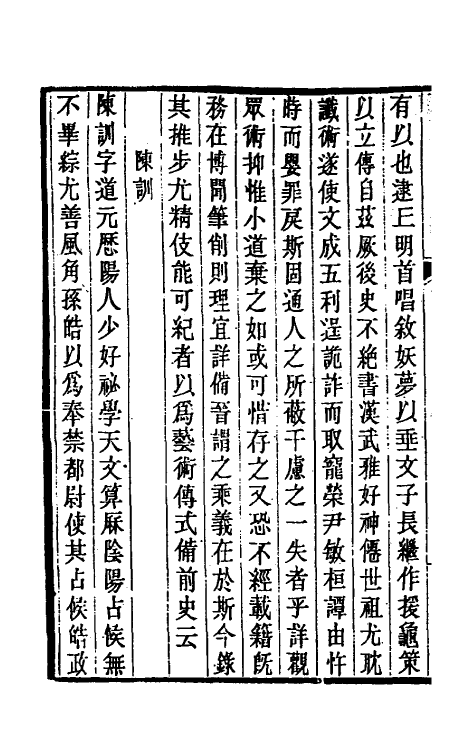 有以也逮丘明首唱敘妖夢以垂文子長繼作援龜策
以立傳自茲厥後史不絕書漢武雅好神僊世祖尤耽
讖術遂使文成五利逞詭詐而取寵榮尹敏桓譚由忤
時而嬰罪戾斯固通人之所蔽千慮之一失者乎詳觀
眾術抑惟小道棄之如或可惜存之又恐不經載籍旣
務在博聞筆削則理宜詳備晉謂之乘義在於斯今錄
其推步尤精伎能可紀者以爲藝術傳式備前史云
陳訓
陳訓字道元歷陽人少好祕學天文算厤陰陽占候無
不畢綜尤善風角孫皓以爲奉禁都尉使其占候皓政